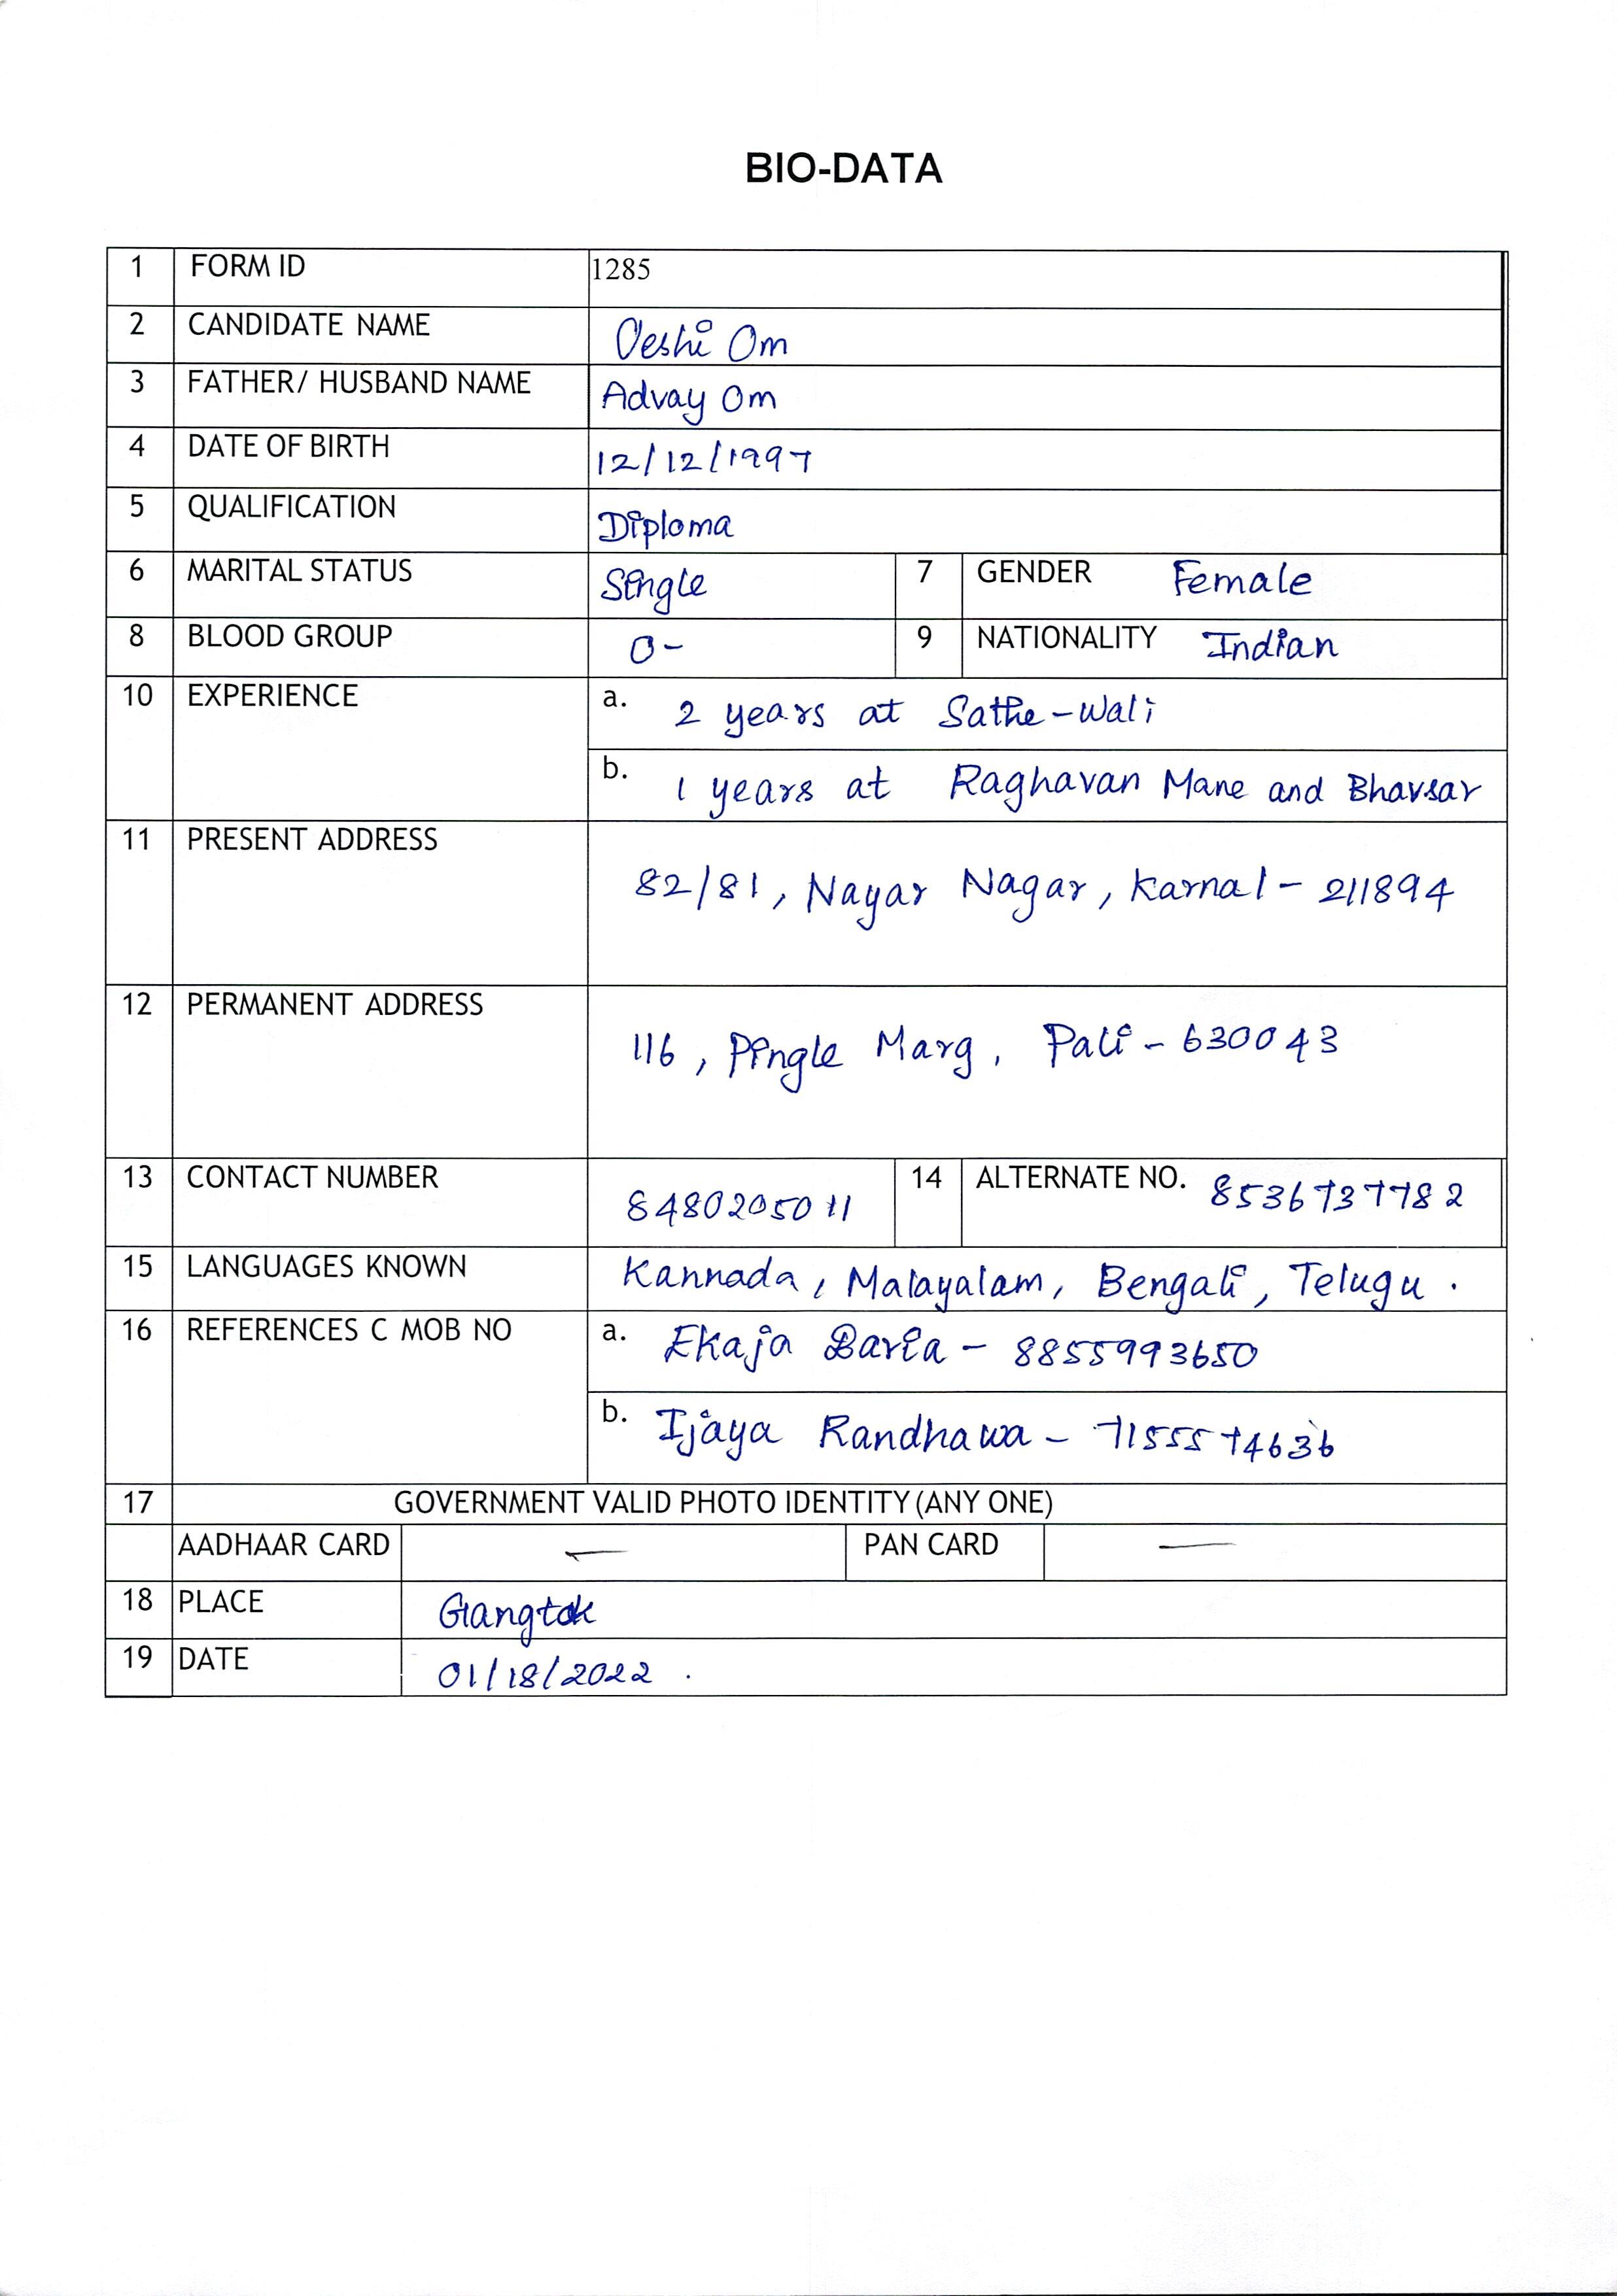 BIO-DATA
1 FORM ID 1285
2 CANDIDATE NAME Oeshi Om
3 FATHER/ HUSBAND NAME Advay Om
4 DATE OF BIRTH 12/12/1997
5 QUALIFICATION Diploma
6 MARITAL STATUS Single 7 GENDER Female
8 BLOOD GROUP O- 9 NATIONALITY Indian
10 EXPERIENCE a. 2 years at Sathe-Wali
b. 1 years at Raghavan Mane and Bhavsar
11 PRESENT ADDRESS 82/81, Nayar Nagar, Karnal - 211894
12 PERMANENT ADDRESS 116, Pingle Marg, Pali - 630043
13 CONTACT NUMBER 8480205011 14 ALTERNATE NO. 8536737782
15 LANGUAGES KNOWN Kannada, Malayalam, Bengali, Telugu.
16 REFERENCES C MOB NO a. Ekaja Baria - 8855993650
b. Ijaya Randhawa - 7155574636
17 GOVERNMENT VALID PHOTO IDENTITY (ANY ONE)
AADHAAR CARD — PAN CARD —
18 PLACE Gangtok
19 DATE 01/18/2022.